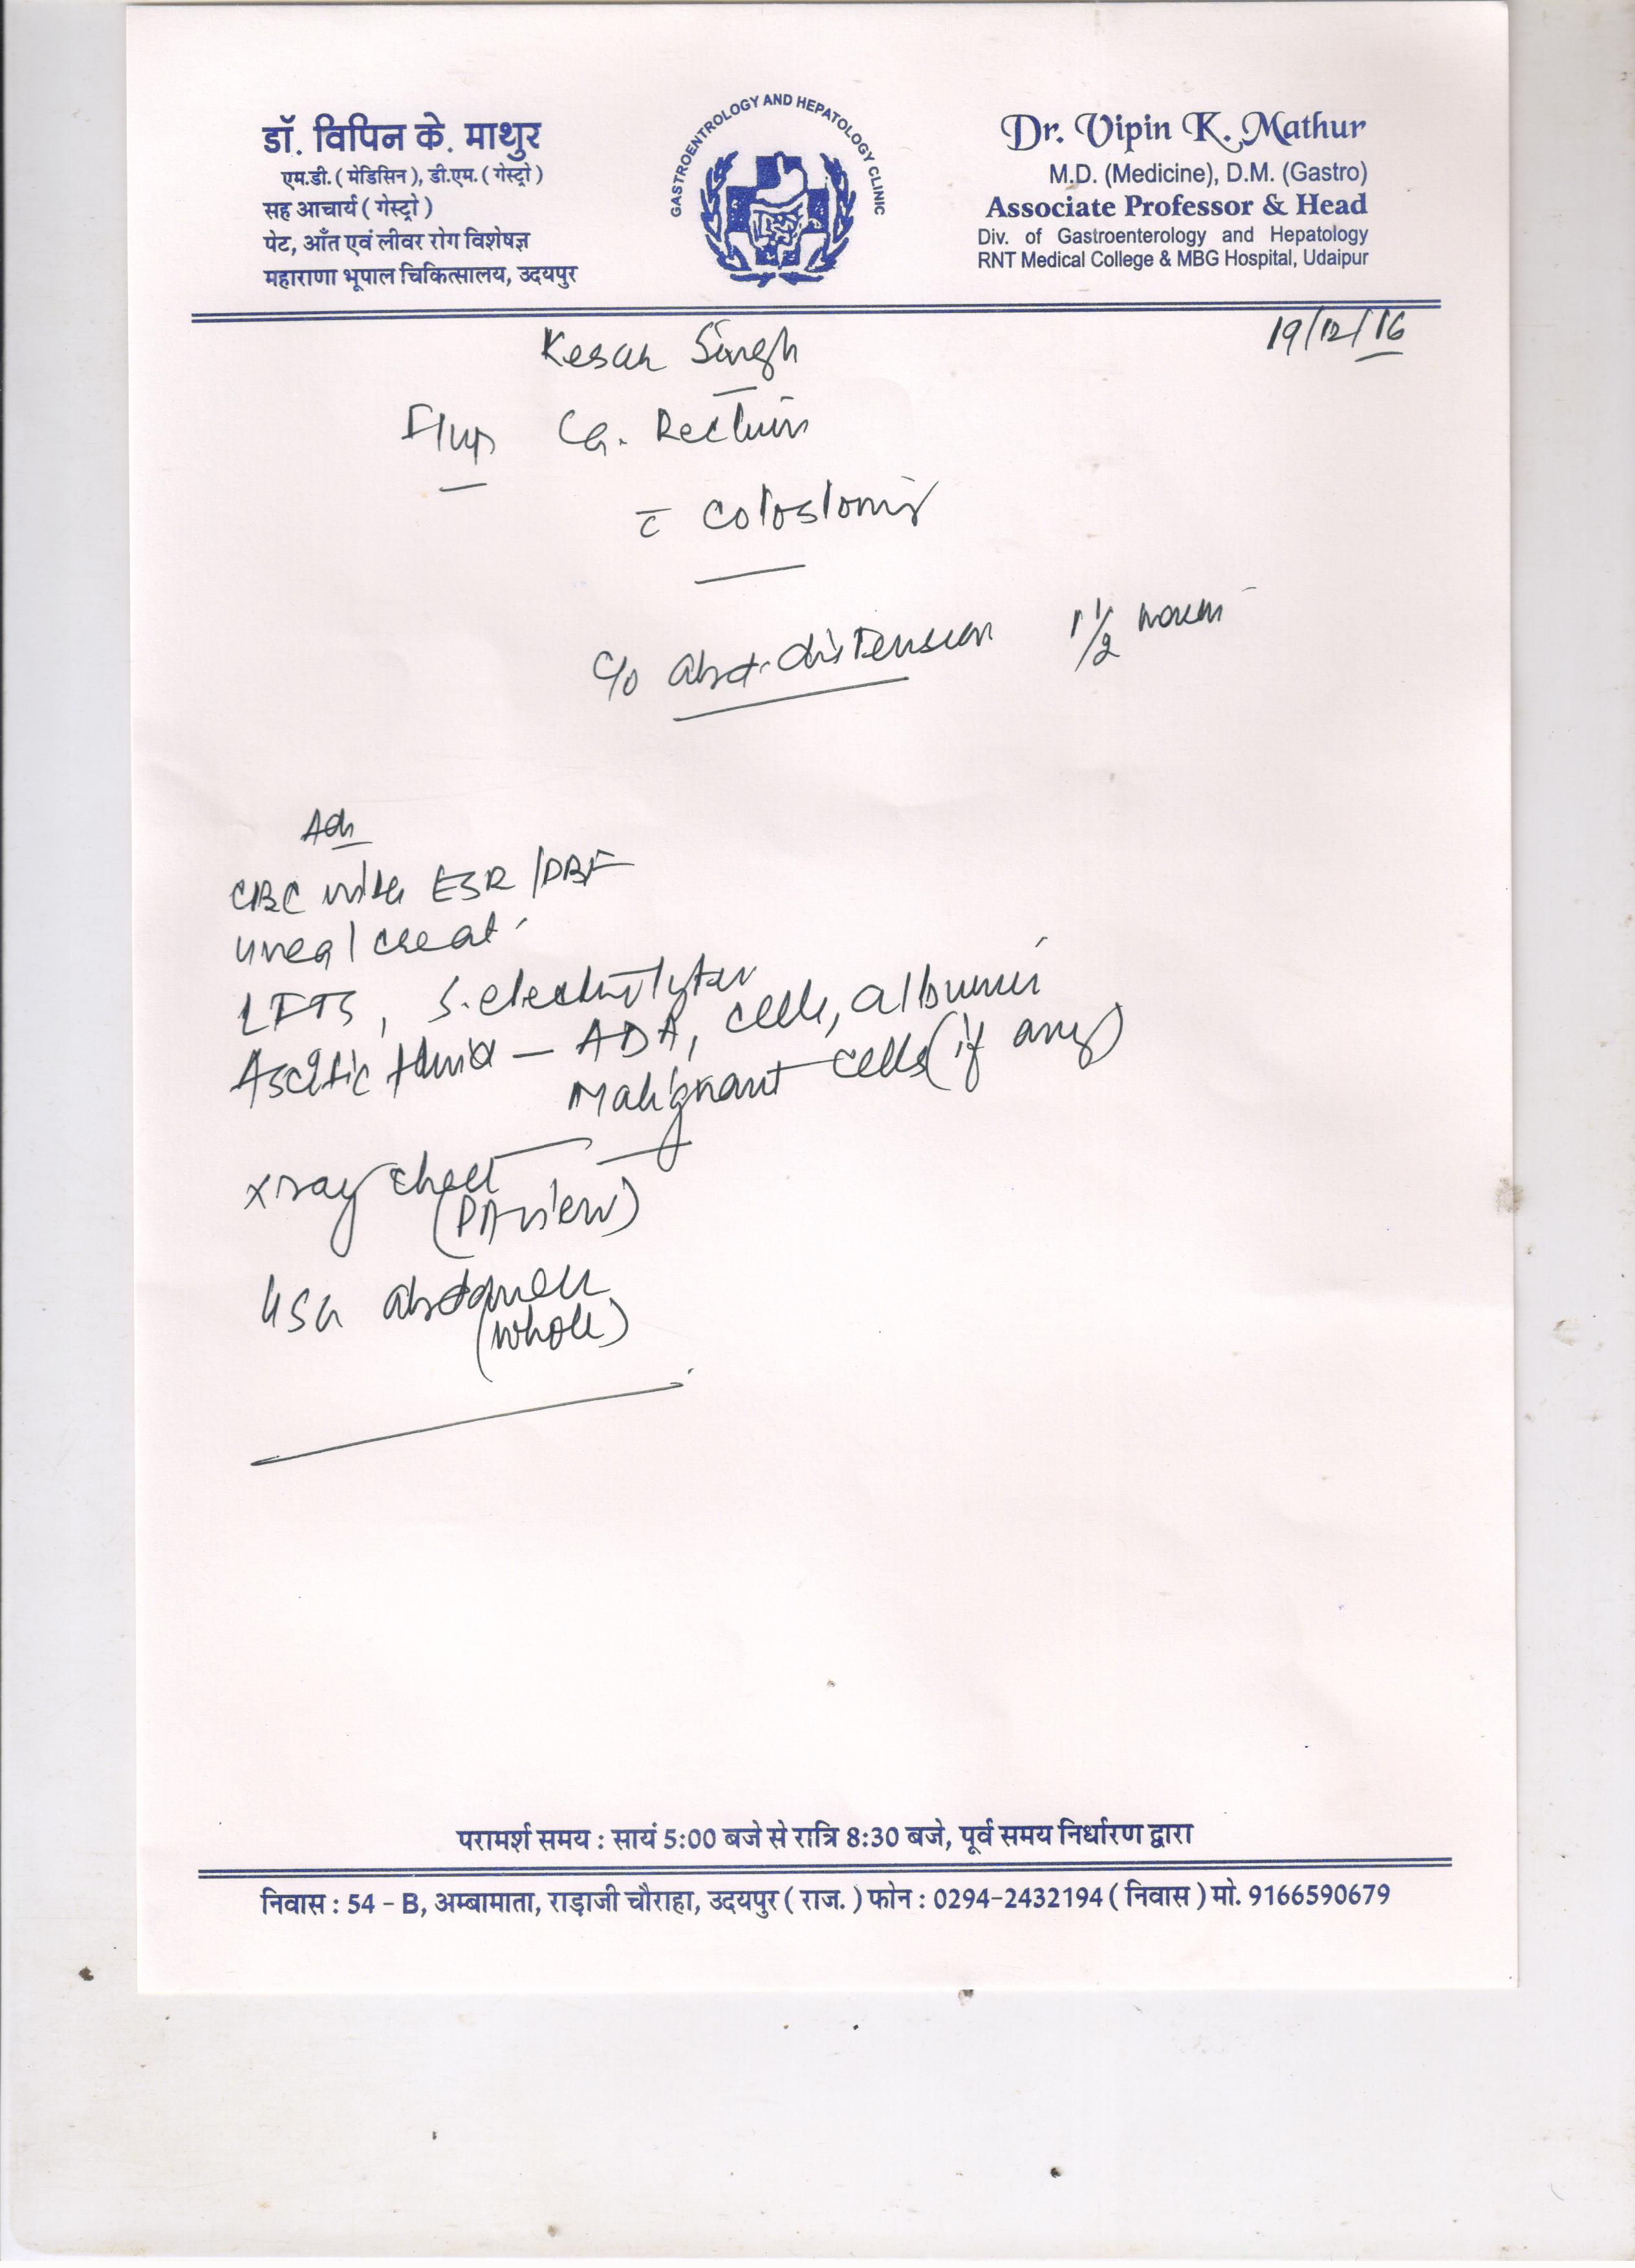 डॉ. विपिन के. माथुर
एम.डी. ( मेडिसिन ), डी.एम. ( गेस्ट्रो )
सह आचार्य ( गेस्ट्रो )
पेट, आँत एवं लीवर रोग विशेषज्ञ
महाराणा भूपाल चिकित्सालय, उदयपुर
GASTROENTROLOGY AND HEPATOLOGY CLINIC
Dr. Vipin K. Mathur
M.D. (Medicine), D.M. (Gastro)
Associate Professor & Head
Div. of Gastroenterology and Hepatology
RNT Medical College & MBG Hospital, Udaipur
19/12/16
Kesar Singh
F/up Ca. Rectum
c̄ colostomy
c/o abd. distension 1 1/2 month
Adv
CBC with ESR / PBF
urea / creat
LFTS, S. electrolytes
Ascitic fluid - ADA, cells, albumin
Malignant cells (if any)
xray chest
(PA view)
USG abdomen
(whole)
परामर्श समय : सायं 5:00 बजे से रात्रि 8:30 बजे, पूर्व समय निर्धारण द्वारा
निवास : 54 - B, अम्बामाता, राड़ाजी चौराहा, उदयपुर ( राज. ) फोन : 0294-2432194 ( निवास ) मो. 9166590679